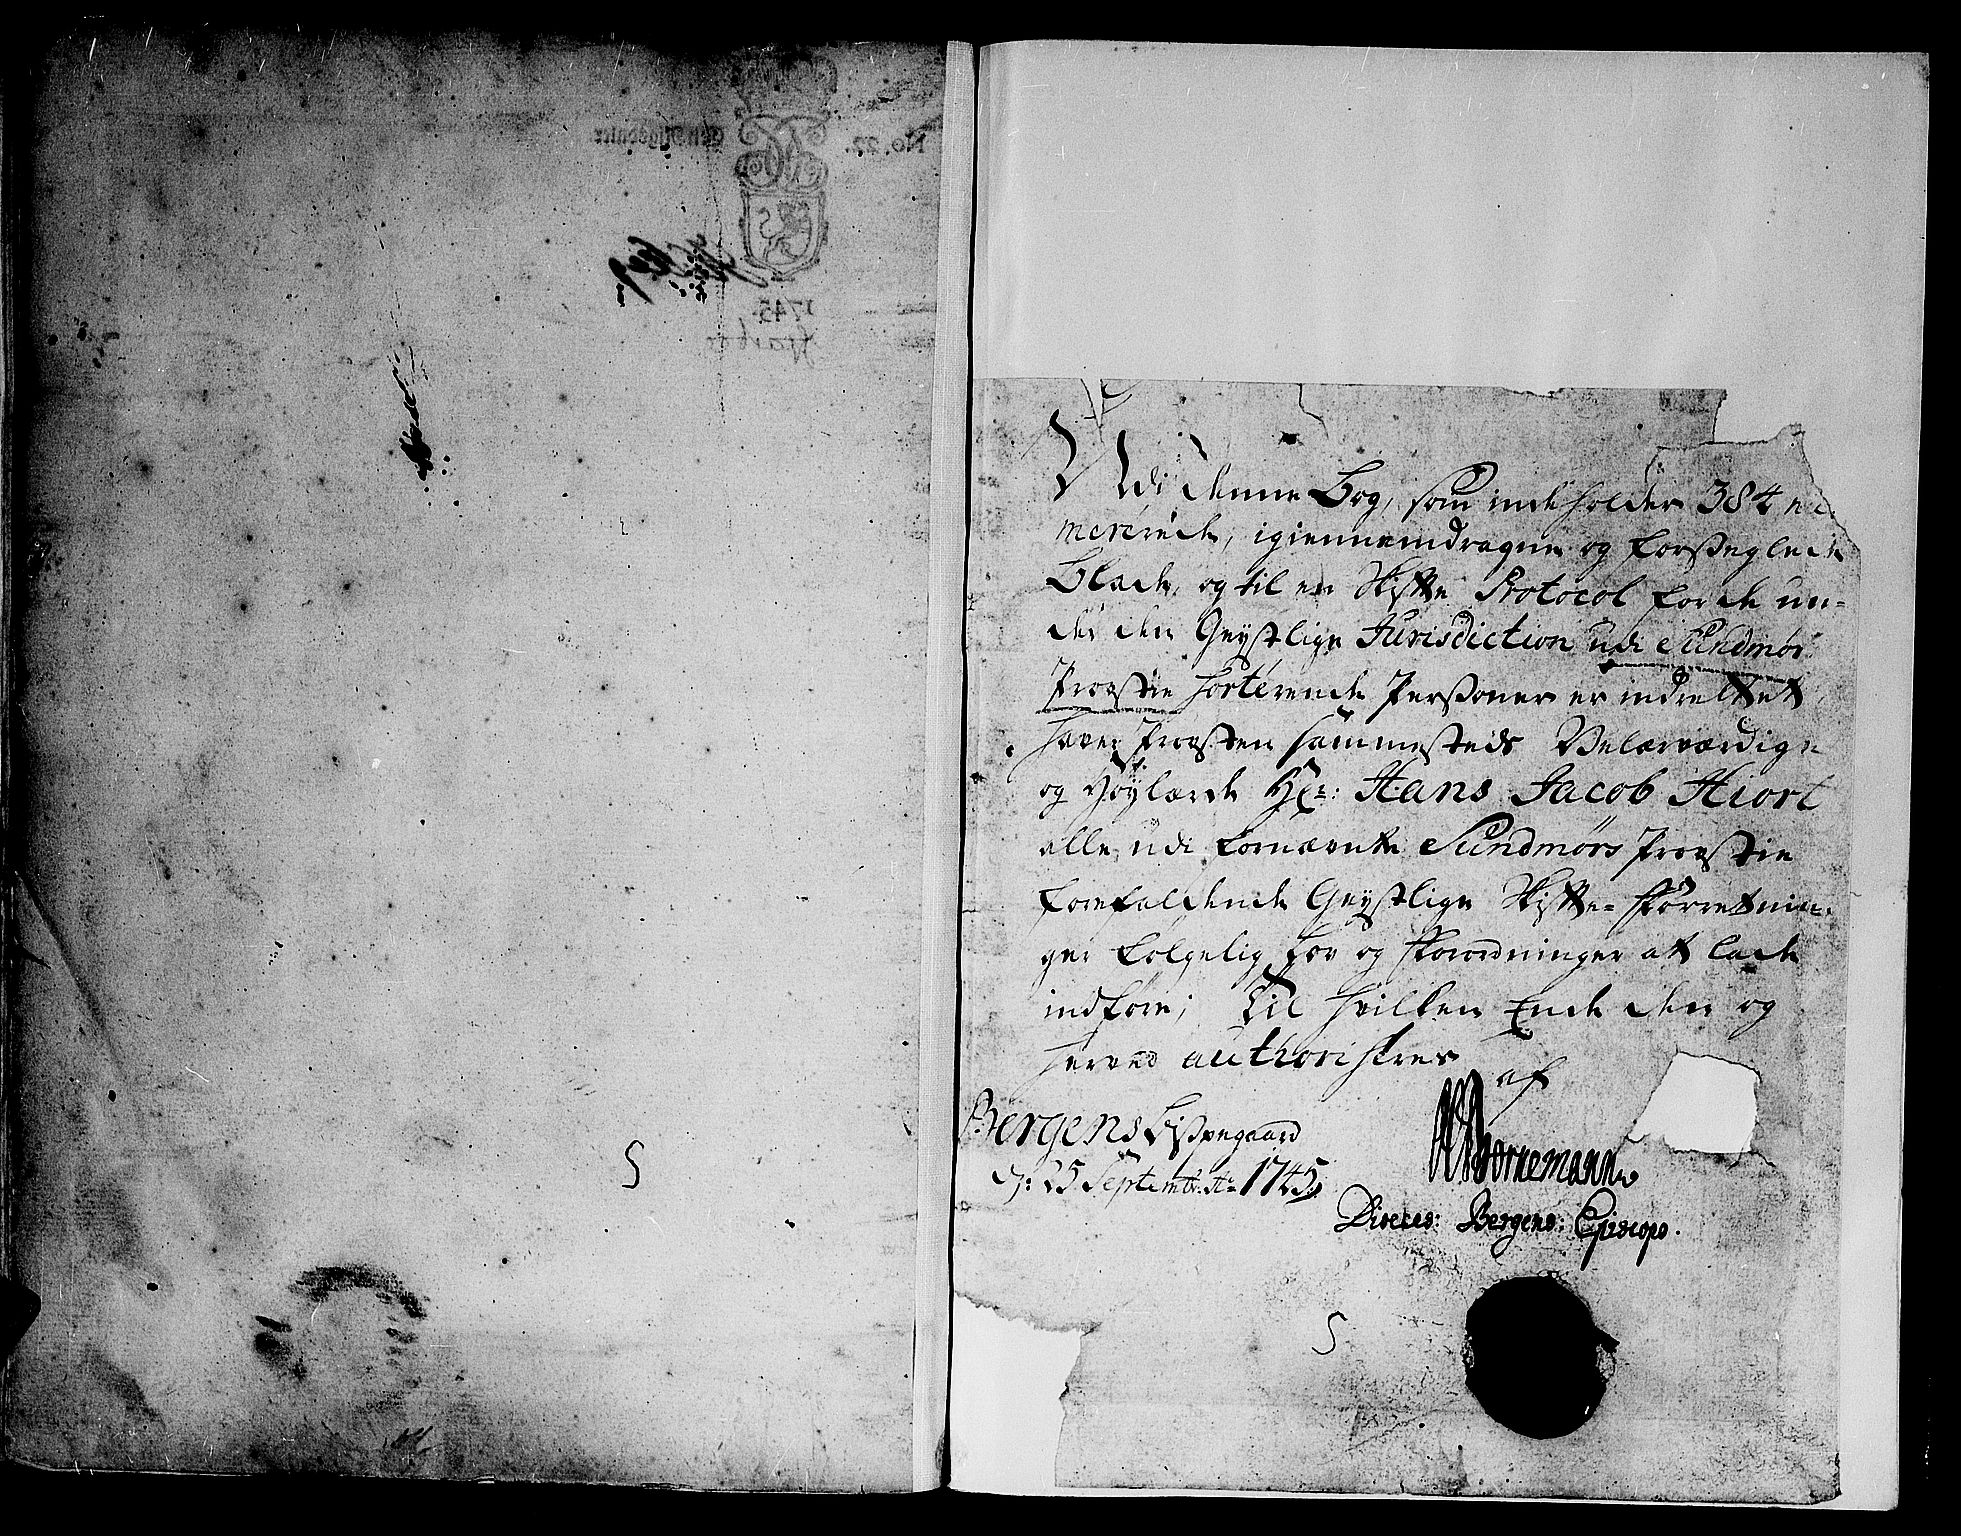 No. 22.
1745.
Udi denne Bog, som indeholder 384 nu-
mererede, igiennemdragne og forseglede
Blade, og til en Skifte Protocol for de un-
der den Geystlige Jurisdiction udi Sundmørs
Provstie sorterende Persohner er indrettet,
haver Provsten sammesteds Velærværdige
og Høylærde Hr: Hans Jacob Hiort
alle udi fornævnte Sundmørs Provstie
forefaldende Geystlige Skifte-Forretnin-
ger følgelig Lov og Forordninger at lade
indføre; Til hvilken Ende den og
herved authoriseres af
Bergens Bispegaard
d: 25 Septembr: Ao 1745.
Bornemann
Dioeces: Bergens: Episcopo.